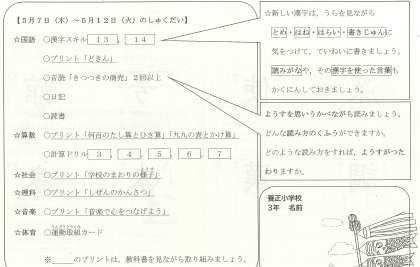 【5月7日（木）～5月12日（火）のしゅくだい】
☆国語 ○漢字スキル 13 , 14
○プリント「どきん」
○音読「きつつきの商売」2回以上
○日記
○読書
☆算数 ○プリント「何百のたし算とひき算」「九九の表とかけ算」
○計算ドリル 3 , 4 , 5 , 6 , 7
☆社会 ○プリント「学校のまわりの様子」
☆理科 ○プリント「しぜんのかんさつ」
☆音楽 ○プリント「音楽で心をつなげよう」
☆体育 ○運動取組カード
※＿＿＿のプリントは、教科書を見ながら取り組みましょう。
☆新しい漢字は、うらを見ながら
とめ・はね・はらい・書きじゅんに
気をつけて、ていねいに書きましょう。
読みがなや、その漢字を使った言葉も
かくにんしておきましょう。
ようすを思いうかべながら読みましょう。
どんな読み方のくふうができますか。
どのような読み方をすれば、ようすがつた
わりますか。
養正小学校
3年 名前